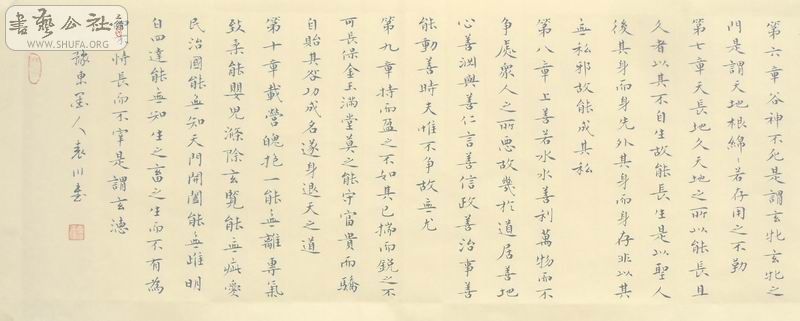 第六章谷神不死是謂玄牝玄牝之
門是謂天地根綿〻若存用之不勤
第七章天長地久天地之所以能長且
久者以其不自生故能長生是以聖人
後其身而身先外其身而身存非以其
無私邪故能成其私
第八章上善若水水善利萬物而不
爭處衆人之所惡故幾於道居善地
心善淵與善仁言善信政善治事善
能動善時夫惟不爭故無尤
第九章持而盈之不如其已揣而銳之不
可長保金玉滿堂莫之能守富貴而驕
自貽其咎功成名遂身退天之道
第十章載營魄抱一能無離專氣
致柔能嬰兒滌除玄覽能無疵愛
民治國能無知天門開闔能無雌明
白四達能無知生之畜之生而不有為
而不恃長而不宰是謂玄德
豫東墨人袁川書
書藝公社
WWW.SHUFA.ORG